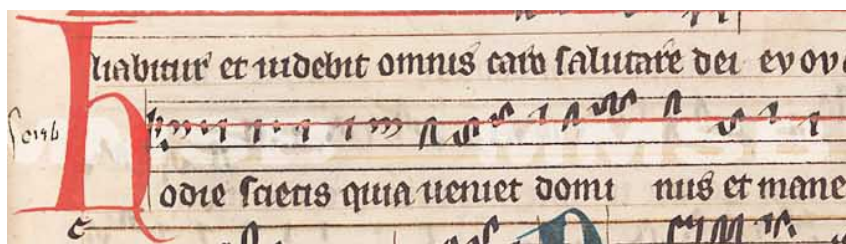 liabitur et uidebit omnis caro salutare dei evov
Hodie scietis quia ueniet domi nus et mane